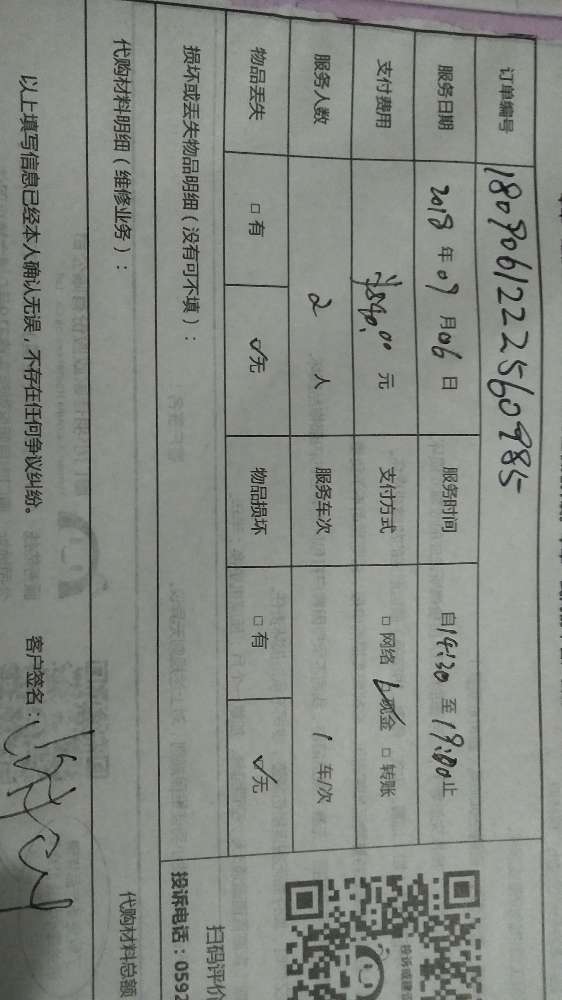 订单编号 180906122256098​5
服务日期 2018 年 09 月 06 日 服务时间 自 14:30 至 19:00 止
支付费用 ¥590.00 元 支付方式 □ 网络 ☑ 现金 □ 转账
服务人数 2 人 服务车次 1 车/次
物品丢失 □ 有 ☑ 无 物品损坏 □ 有 ☑ 无
损坏或丢失物品明细(没有可不填):
扫码评价
投诉电话:0592
代购材料明细(维修业务): 代购材料总额
以上填写信息已经本人确认无误,不存在任何争议纠纷。 客户签名: